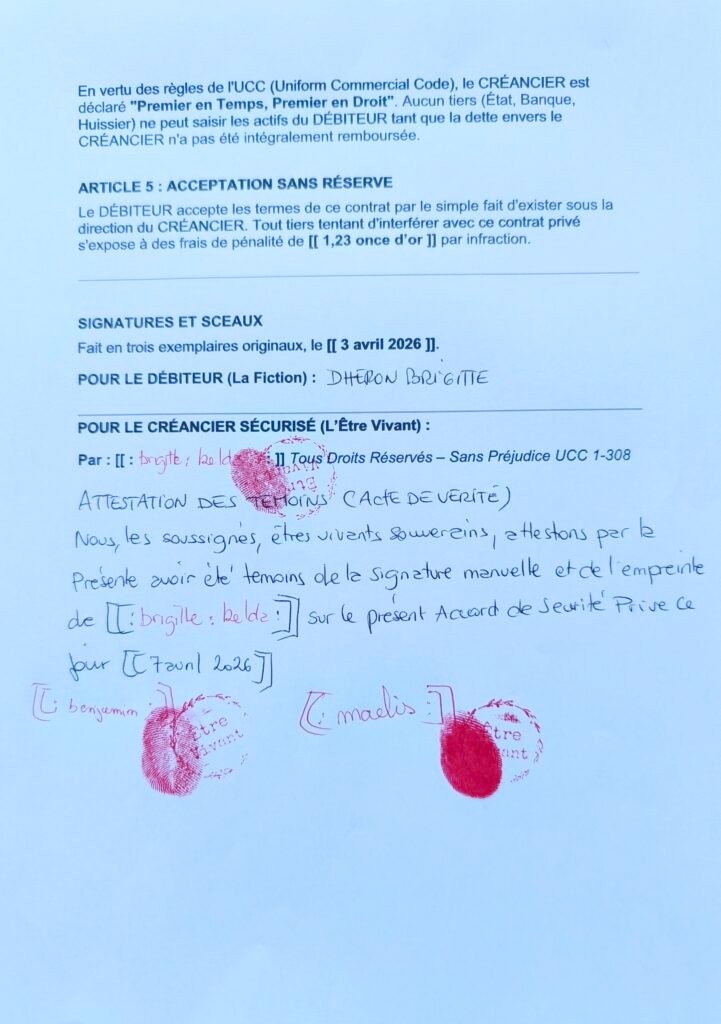 En vertu des règles de l'UCC (Uniform Commercial Code), le CRÉANCIER est
déclaré "Premier en Temps, Premier en Droit". Aucun tiers (État, Banque,
Huissier) ne peut saisir les actifs du DÉBITEUR tant que la dette envers le
CRÉANCIER n'a pas été intégralement remboursée.
ARTICLE 5 : ACCEPTATION SANS RÉSERVE
Le DÉBITEUR accepte les termes de ce contrat par le simple fait d'exister sous la
direction du CRÉANCIER. Tout tiers tentant d'interférer avec ce contrat privé
s'expose à des frais de pénalité de [[ 1,23 once d'or ]] par infraction.
SIGNATURES ET SCEAUX
Fait en trois exemplaires originaux, le [[ 3 avril 2026 ]].
POUR LE DÉBITEUR (La Fiction) : DHERON BRIGITTE
POUR LE CRÉANCIER SÉCURISÉ (L'Être Vivant) :
Par : [[ : brigitte : ]] Tous Droits Réservés – Sans Préjudice UCC 1-308
Être Vivant
ATTESTATION DES TEMOINS (ACTE DE VERITÉ)
Nous, les soussignés, êtres vivants souverains, attestons par la
Présente avoir été témoins de la signature manuelle et de l'empreinte
de [[: brigitte : :]] sur le présent Accord de Securité Privé ce
jour [[7 avril 2026]]
[[: benjamin :]] [[: maelis :]]
Être Être
Vivant Vivant